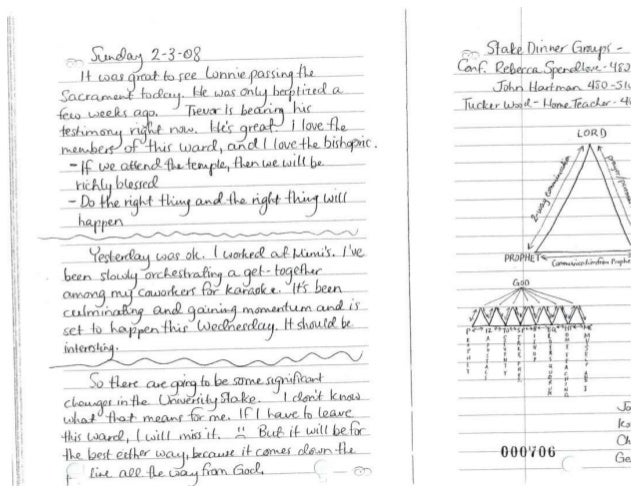 Sunday 2-3-08
It was great to see Lonnie passing the
Sacrament today. He was only baptized a
few weeks ago. Trevor is bearing his
testimony right now. He's great. i love the
members of this ward, and I love the bishopric.
- If we attend the temple, then we will be
richly blessed
- Do the right thing and the right thing will
happen
Yesterday was ok. I worked at Mimi's. I've
been slowly orchestrating a get-together
among my coworkers for karaoke. It's been
culminating and gaining momentum and is
set to happen this Wednesday. It should be
interesting.
So there are going to be some significant
changes in the University Stake. I don't know
what that means for me. If I have to leave
this ward, I will miss it. But it will be for
the best either way, because it comes down the
line all the way from God.
Stake Dinner Groups -
Conf. Rebecca Spendlove - 480
John Hartman 480-
Tucker Wood - Home Teacher - 4
LORD
2-way communication
prayer/
PROPHET
Communication from Prophet
GOD
PROPHET
12 APOSTLES
BISHOP
HOME TEACHING
MYSELF
000706
Jo
Ch
Ge